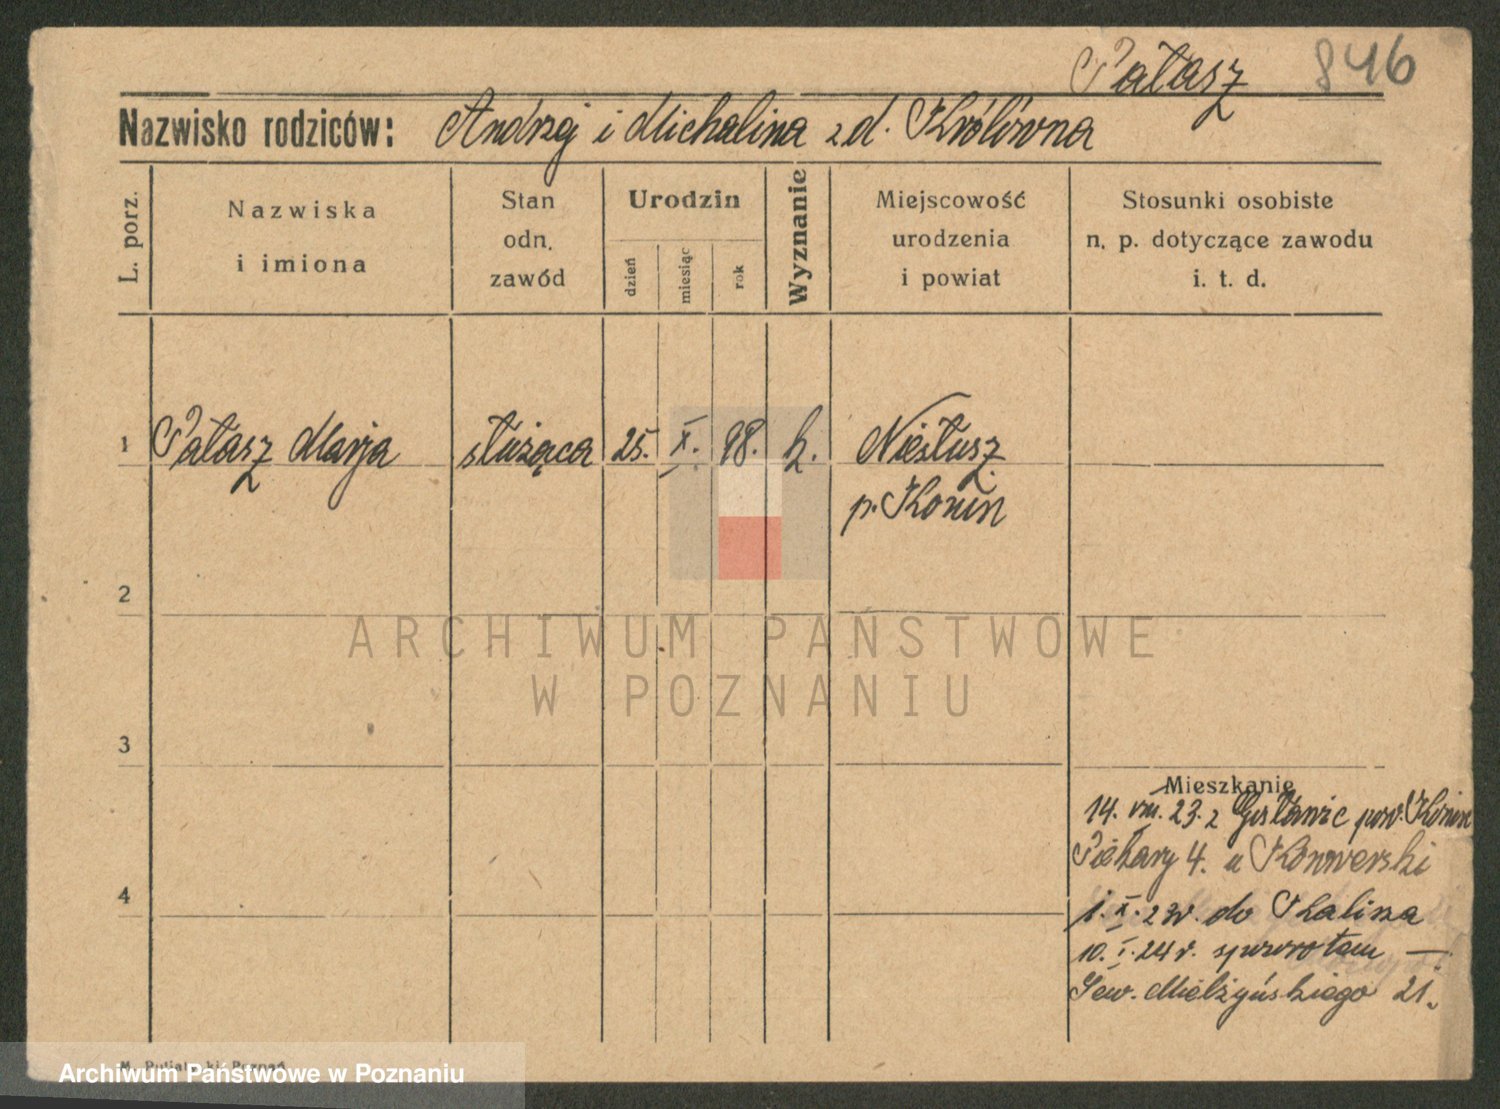 Pałasz 846
Nazwisko rodziców: Andrzej i Michalina z d. Królówna
L. porz.
Nazwiska
i imiona
Stan
odn.
zawód
Urodzin
dzień
miesiąc
rok
Wyznanie
Miejscowość
urodzenia
i powiat
Stosunki osobiste
n. p. dotyczące zawodu
i. t. d.
1 Pałasz Marja służąca 25. X. 98. k. Niesłusz
p. Konin
2
ARCHIWUM PAŃSTWOWE
W POZNANIU
3
Mieszkanie
14. VIII. 23. z pow. Konin
Piekary 4. u Konwerski
4
1. X. 23r. do Kalisza
10. I. 24 r. spowrotem —
Sew. Mielżyńskiego 21.
Poznań
Archiwum Państwowe w Poznaniu